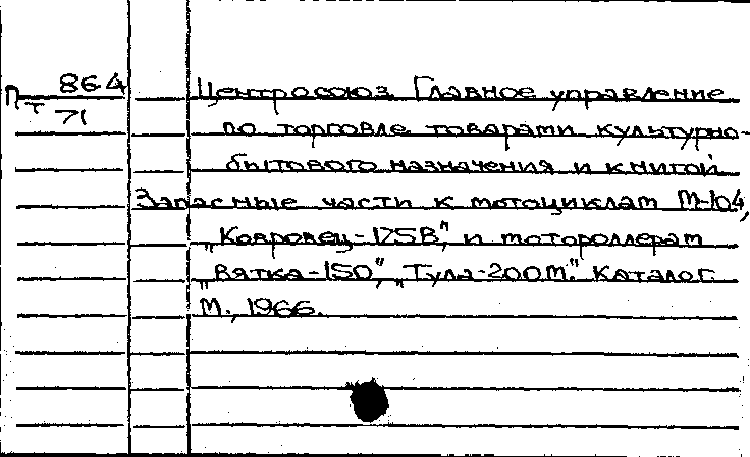 П 864
Т 71
Центросоюз. Главное управление
по торговле товарами культурно-
бытового назначения и книгой.
Запасные части к мотоциклам М-104,
„Ковровец-175В", и мотороллерам
„Вятка-150", „Тула-200М". Каталог.
М., 1966.